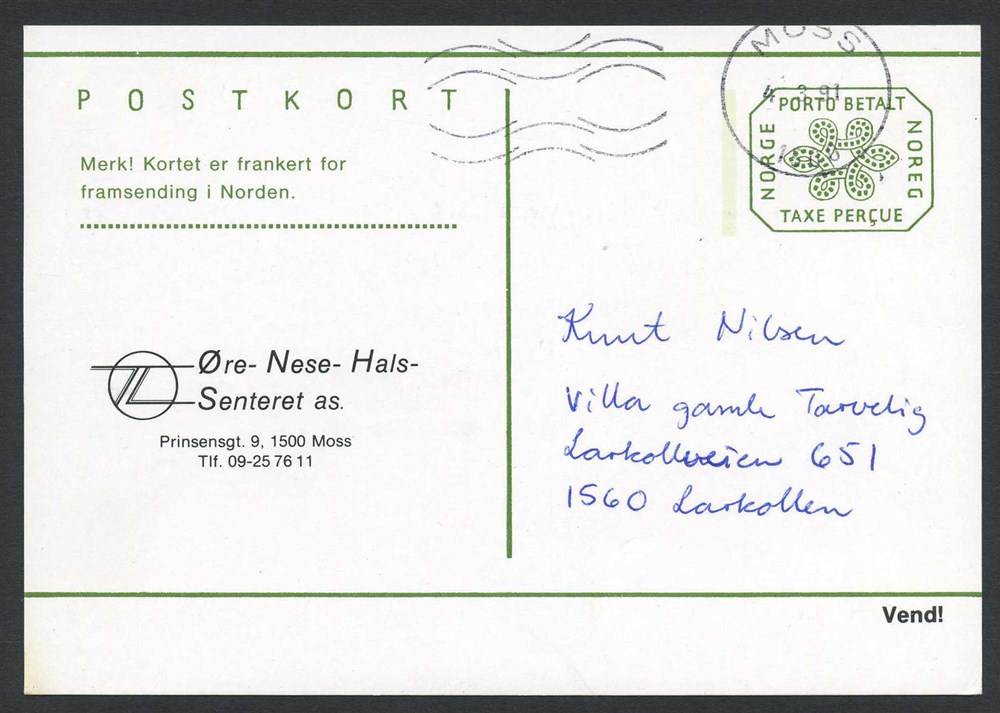 POSTKORT
Merk! Kortet er frankert for
framsending i Norden.
MOSS
4.3.91
PORTO BETALT
NORGE
NOREG
TAXE PERÇUE
Øre- Nese- Hals-
Senteret as.
Prinsensgt. 9, 1500 Moss
Tlf. 09-25 76 11
Knut Nilsen
Villa gamle Tarvelig
Larkollveien 651
1560 Larkollen
Vend!